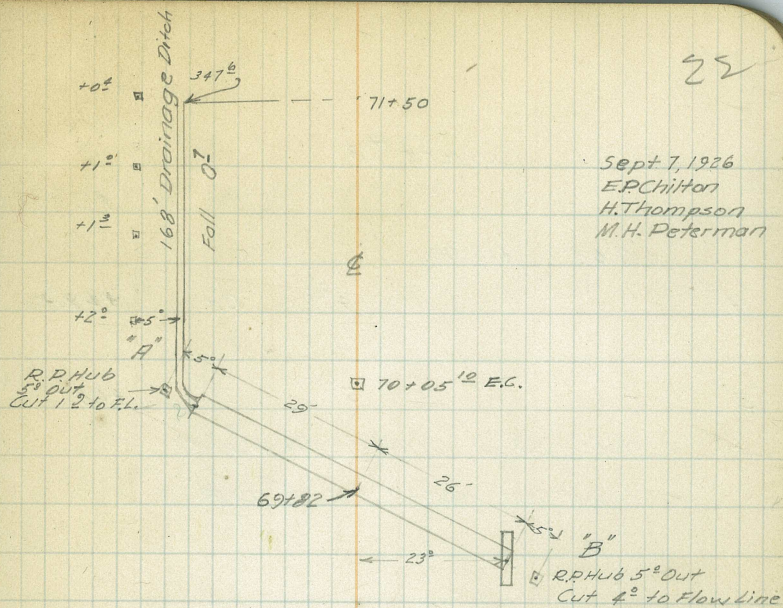 22
Sept 7, 1926
E.P. Chilton
H. Thompson
M.H. Peterman
168' Drainage Ditch
Fall 0⁷
347⁶
71+50
+0⁴
+1⁰
+1³
+2⁰
5⁰
"A"
5⁰
R.P. Hub
5⁰ Out
Cut 1² to F.L.
℄
70+05¹⁰ E.C.
29-
26-
69+82
23⁰
5⁰
"B"
R.P. Hub 5⁰ Out
Cut 4⁰ to Flow Line